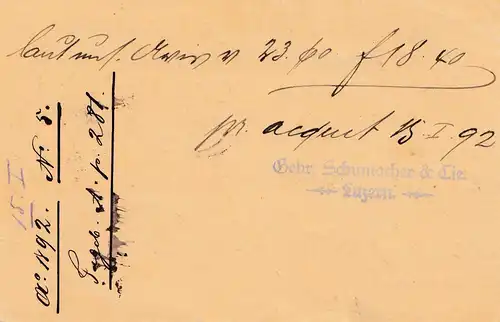 laut uns. Avis v 23. f 18.40
pr. acquit 15 I 92
Gebr. Schumacher & Cie.
Luzern.
15. I
Ao. 1892. No. 5.
p. 281.